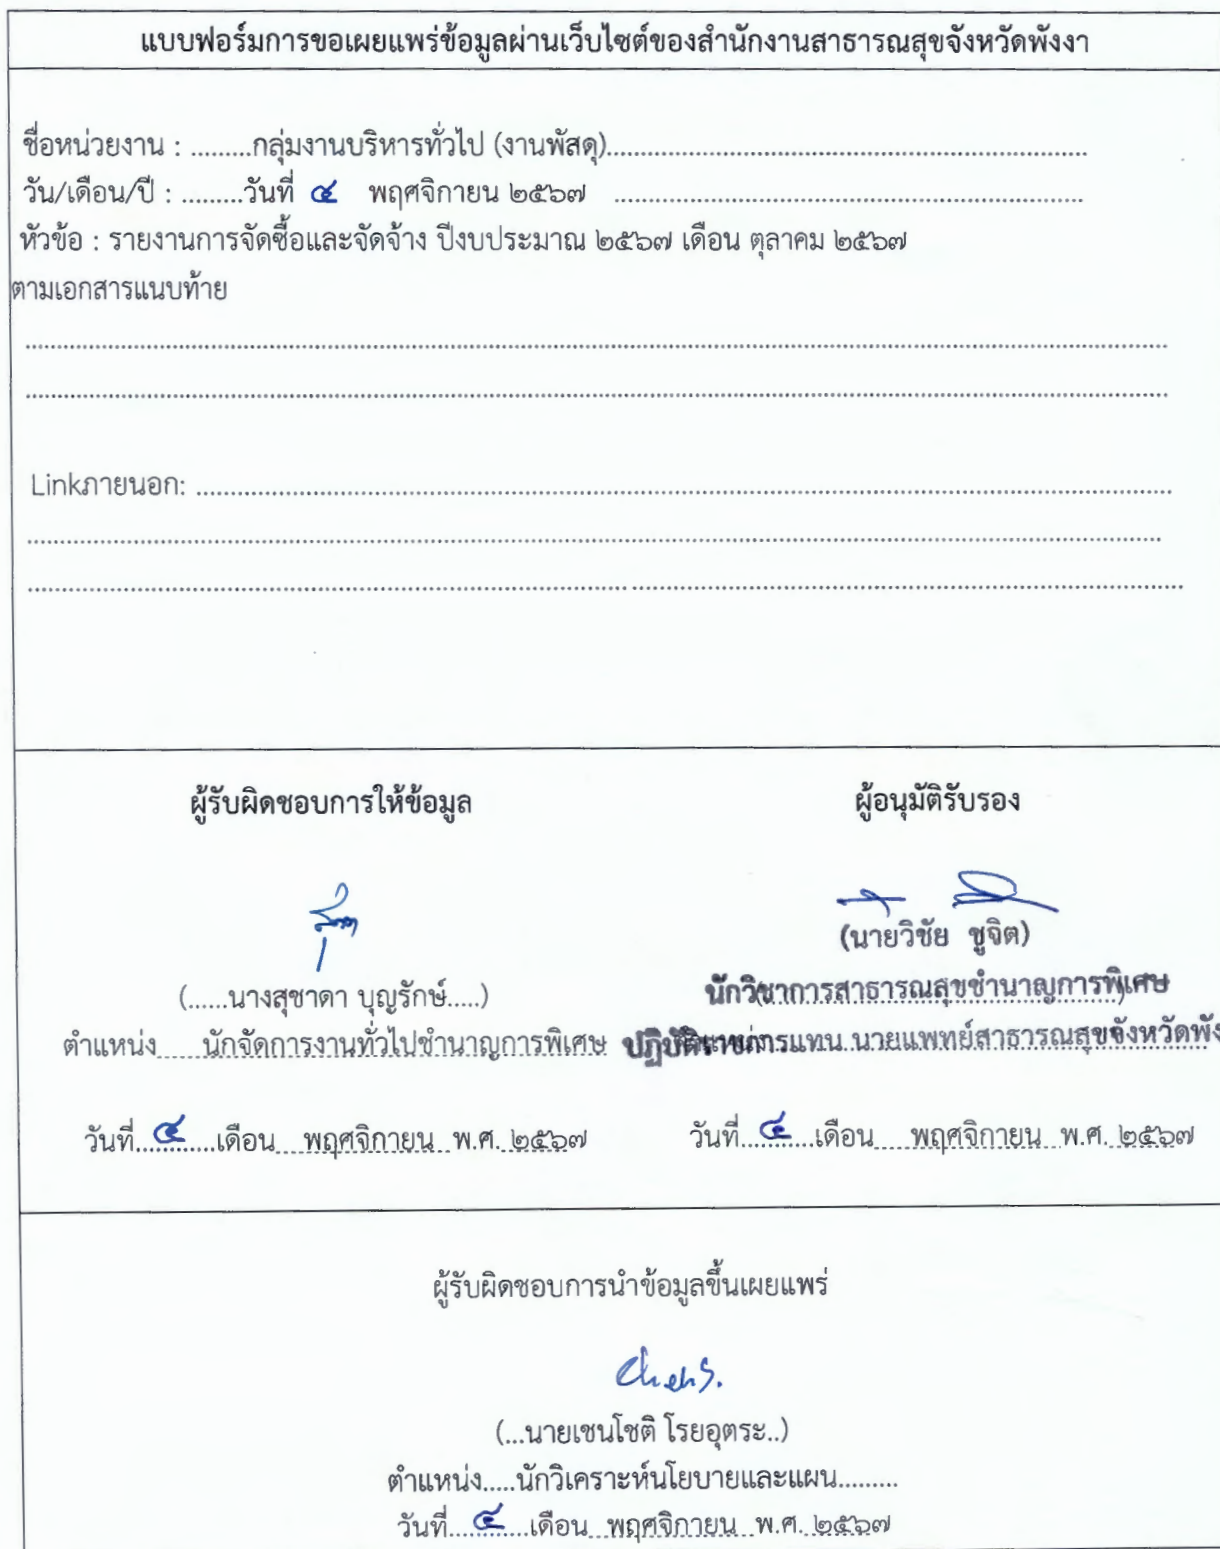 แบบฟอร์มการขอเผยแพร่ข้อมูลผ่านเว็บไซต์ของสำนักงานสาธารณสุขจังหวัดพังงา
ชื่อหน่วยงาน : .........กลุ่มงานบริหารทั่วไป (งานพัสดุ)..........
วัน/เดือน/ปี : .........วันที่ ๔ พฤศจิกายน ๒๕๖๗ ..........
หัวข้อ : รายงานการจัดซื้อและจัดจ้าง ปีงบประมาณ ๒๕๖๗ เดือน ตุลาคม ๒๕๖๗
ตามเอกสารแนบท้าย
Linkภายนอก: ..........
ผู้รับผิดชอบการให้ข้อมูล
(......นางสุชาดา บุญรักษ์.....)
ตำแหน่ง......นักจัดการงานทั่วไปชำนาญการพิเศษ
วันที่...๔...เดือน...พฤศจิกายน...พ.ศ. ๒๕๖๗
ผู้อนุมัติรับรอง
(นายวิชัย ชูจิต)
นักวิชาการสาธารณสุขชำนาญการพิเศษ
ปฏิบัติราชการแทน นายแพทย์สาธารณสุขจังหวัดพัง
วันที่...๔...เดือน...พฤศจิกายน...พ.ศ. ๒๕๖๗
ผู้รับผิดชอบการนำข้อมูลขึ้นเผยแพร่
(...นายเชนโชติ โรยอุตระ..)
ตำแหน่ง.....นักวิเคราะห์นโยบายและแผน.........
วันที่...๔...เดือน...พฤศจิกายน...พ.ศ. ๒๕๖๗